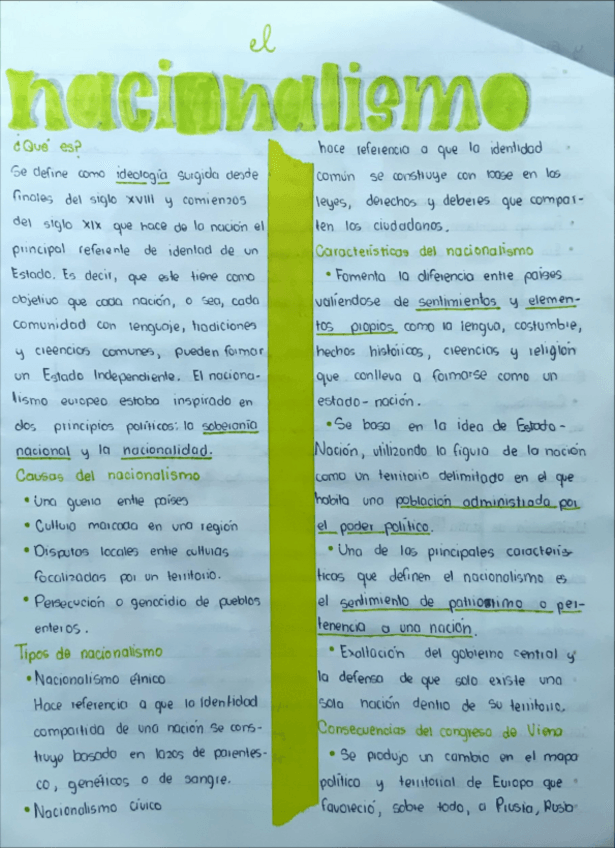 el
nacionalismo
¿Qué es?
Se define como ideología surgida desde
finales del siglo XVIII y comienzos
del siglo XIX que hace de la nación el
principal referente de identad de un
Estado. Es decir, que este tiene como
objetivo que cada nación, o sea, cada
comunidad con lenguaje, tradiciones
y creencias comunes, puedan formar
un Estado Independiente. El naciona-
lismo europeo estaba inspirado en
dos principios políticos: la soberanía
nacional y la nacionalidad.
Causas del nacionalismo
• Una guerra entre países
• Cultura marcada en una región
• Disputas locales entre culturas
focalizadas por un territorio.
• Persecución o genocidio de pueblos
enteros.
Tipos de nacionalismo
• Nacionalismo étnico
Hace referencia a que la identidad
compartida de una nación se cons-
truye basado en lazos de parentes-
co, genéticos o de sangre.
• Nacionalismo cívico
hace referencia a que la identidad
común se construye con base en las
leyes, derechos y deberes que compar-
ten los ciudadanos.
Características del nacionalismo
• Fomenta la diferencia entre países
valiéndose de sentimientos y elemen-
tos propios como la lengua, costumbre,
hechos históricos, creencias y religión
que conlleva a formarse como un
estado-nación.
• Se basa en la idea de Estado-
Nación, utilizando la figura de la nación
como un territorio delimitado en el que
habita una población administrada por
el poder político.
• Una de las principales caracterís-
ticas que definen el nacionalismo es
el sentimiento de patriotimo o per-
tenencia a una nación.
• Exaltación del gobierno central y
la defensa de que solo existe una
sola nación dentro de su territorio.
Consecuencias del congreso de Viena
• Se produjo un cambio en el mapa
político y territorial de Europa que
favoreció, sobre todo, a Prusia, Rusia